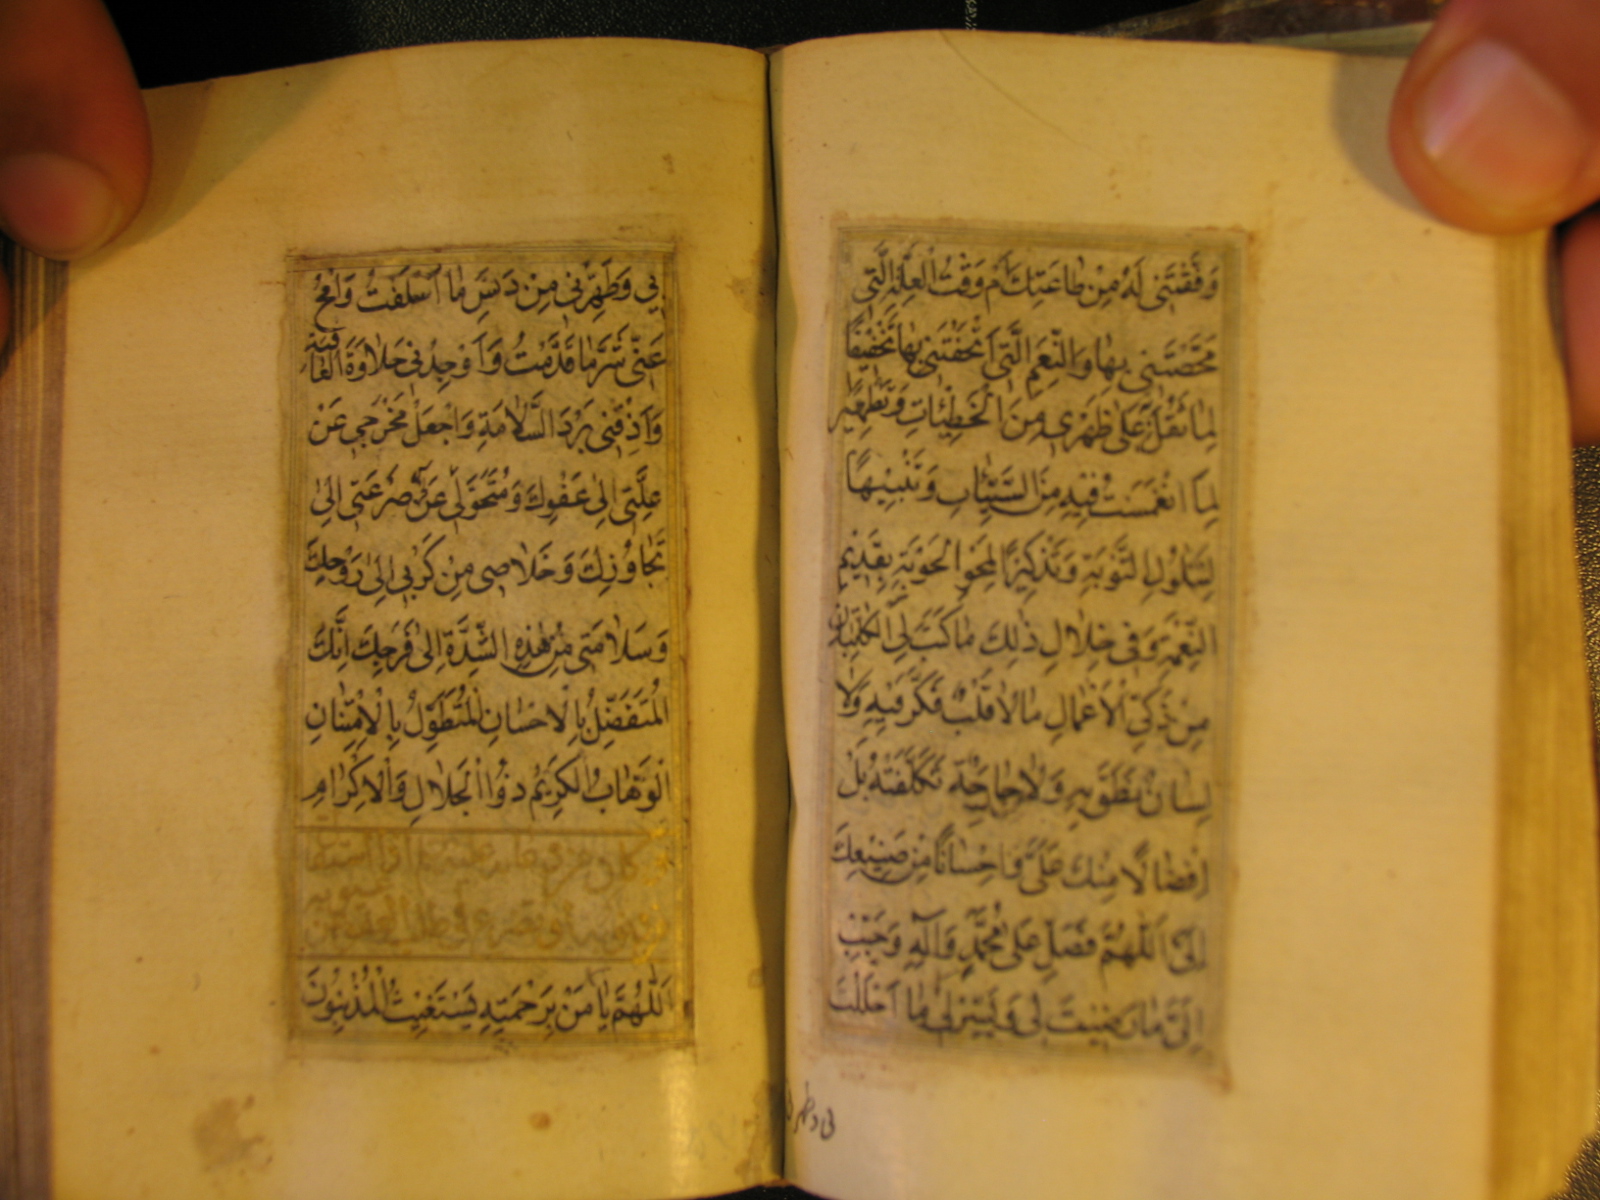 وَفَّقْتَنِي لَهُ مِنْ طَاعَتِكَ اَمْ وَقْتُ الْعِلَّةِ الَّتِي
مَحَّصْتَنِي بِهَا وَالنِّعَمِ الَّتِي اَتْحَفْتَنِي بِهَا تَخْفِيفًا
لِمَا ثَقُلَ عَلَى ظَهْرِي مِنَ الْخَطِيئَاتِ وَتَطْهِيرًا
لِمَا انْغَمَسْتُ فِيهِ مِنَ السَّيِّئَاتِ وَتَنْبِيهًا
لِتَنَاوُلِ التَّوْبَةِ وَتَذْكِيرًا لِمَحْوِ الْحَوْبَةِ بِقَدِيمِ
النِّعْمَةِ وَفِي خِلَالِ ذٰلِكَ مَا كَتَبَ لِيَ الْكَاتِبَانِ
مِنْ زَكِيِّ الْاَعْمَالِ مَا لَا قَلْبٌ فَكَّرَ فِيهِ وَلَا
لِسَانٌ نَطَقَ بِهِ وَلَا جَارِحَةٌ تَكَلَّفَتْهُ بَلْ
اِفْضَالًا مِنْكَ عَلَيَّ وَاِحْسَانًا مِنْ صَنِيعِكَ
اِلَيَّ اَللّٰهُمَّ فَصَلِّ عَلَى مُحَمَّدٍ وَآلِهِ وَحَبِّبْ
اِلَيَّ مَا رَضِيتَ لِي وَيَسِّرْ لِي مَا اَحْلَلْتَ
بِي وَطَهِّرْنِي مِنْ دَنَسِ مَا اَسْلَفْتُ وَامْحُ
عَنِّي شَرَّ مَا قَدَّمْتُ وَاَوْجِدْنِي حَلَاوَةَ الْعَافِيَةِ
وَاَذِقْنِي بَرْدَ السَّلَامَةِ وَاجْعَلْ مَخْرَجِي عَنْ
عِلَّتِي اِلَى عَفْوِكَ وَمُتَحَوَّلِي عَنْ صَرْعَتِي اِلَى
تَجَاوُزِكَ وَخَلَاصِي مِنْ كَرْبِي اِلَى رَوْحِكَ
وَسَلَامَتِي مِنْ هٰذِهِ الشِّدَّةِ اِلَى فَرَجِكَ اِنَّكَ
الْمُتَفَضِّلُ بِالْاِحْسَانِ الْمُتَطَوِّلُ بِالْاِمْتِنَانِ
الْوَهَّابُ الْكَرِيمُ ذُو الْجَلَالِ وَالْاِكْرَامِ
اَللّٰهُمَّ يَا مَنْ بِرَحْمَتِهِ يَسْتَغِيثُ الْمُذْنِبُونَ